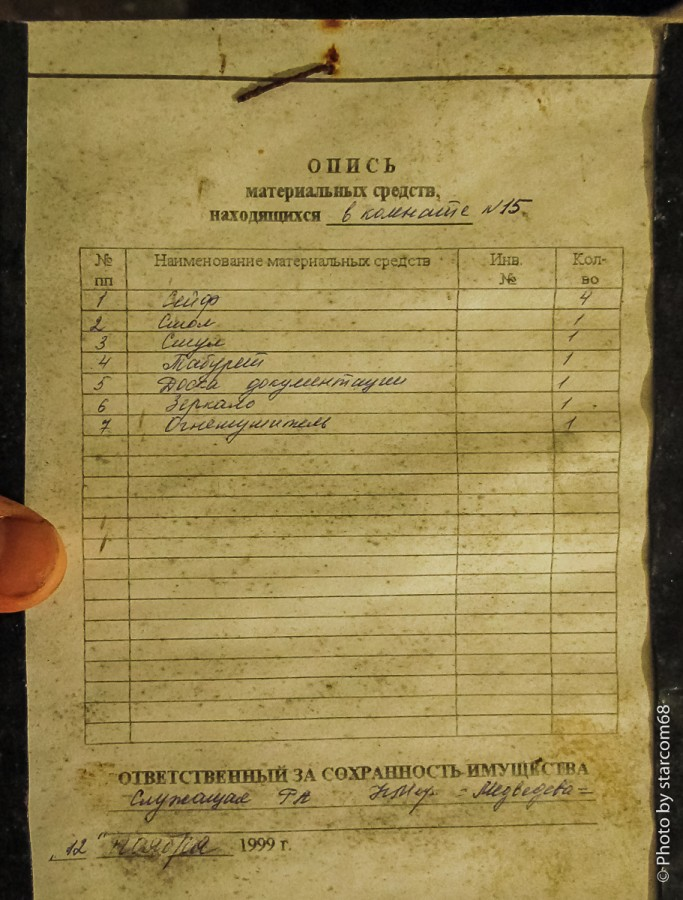 ОПИСЬ
материальных средств,
находящихся в комнате №15
№ пп Наименование материальных средств Инв. № Кол-во
1 Сейф 4
2 Стол 1
3 Стул 1
4 Табурет 1
5 Доска документации 1
6 Зеркало 1
7 Огнетушитель 1
ОТВЕТСТВЕННЫЙ ЗА СОХРАННОСТЬ ИМУЩЕСТВА
Служащая РА - Медведева -
"12" ноября 1999 г.
© Photo by starcom68